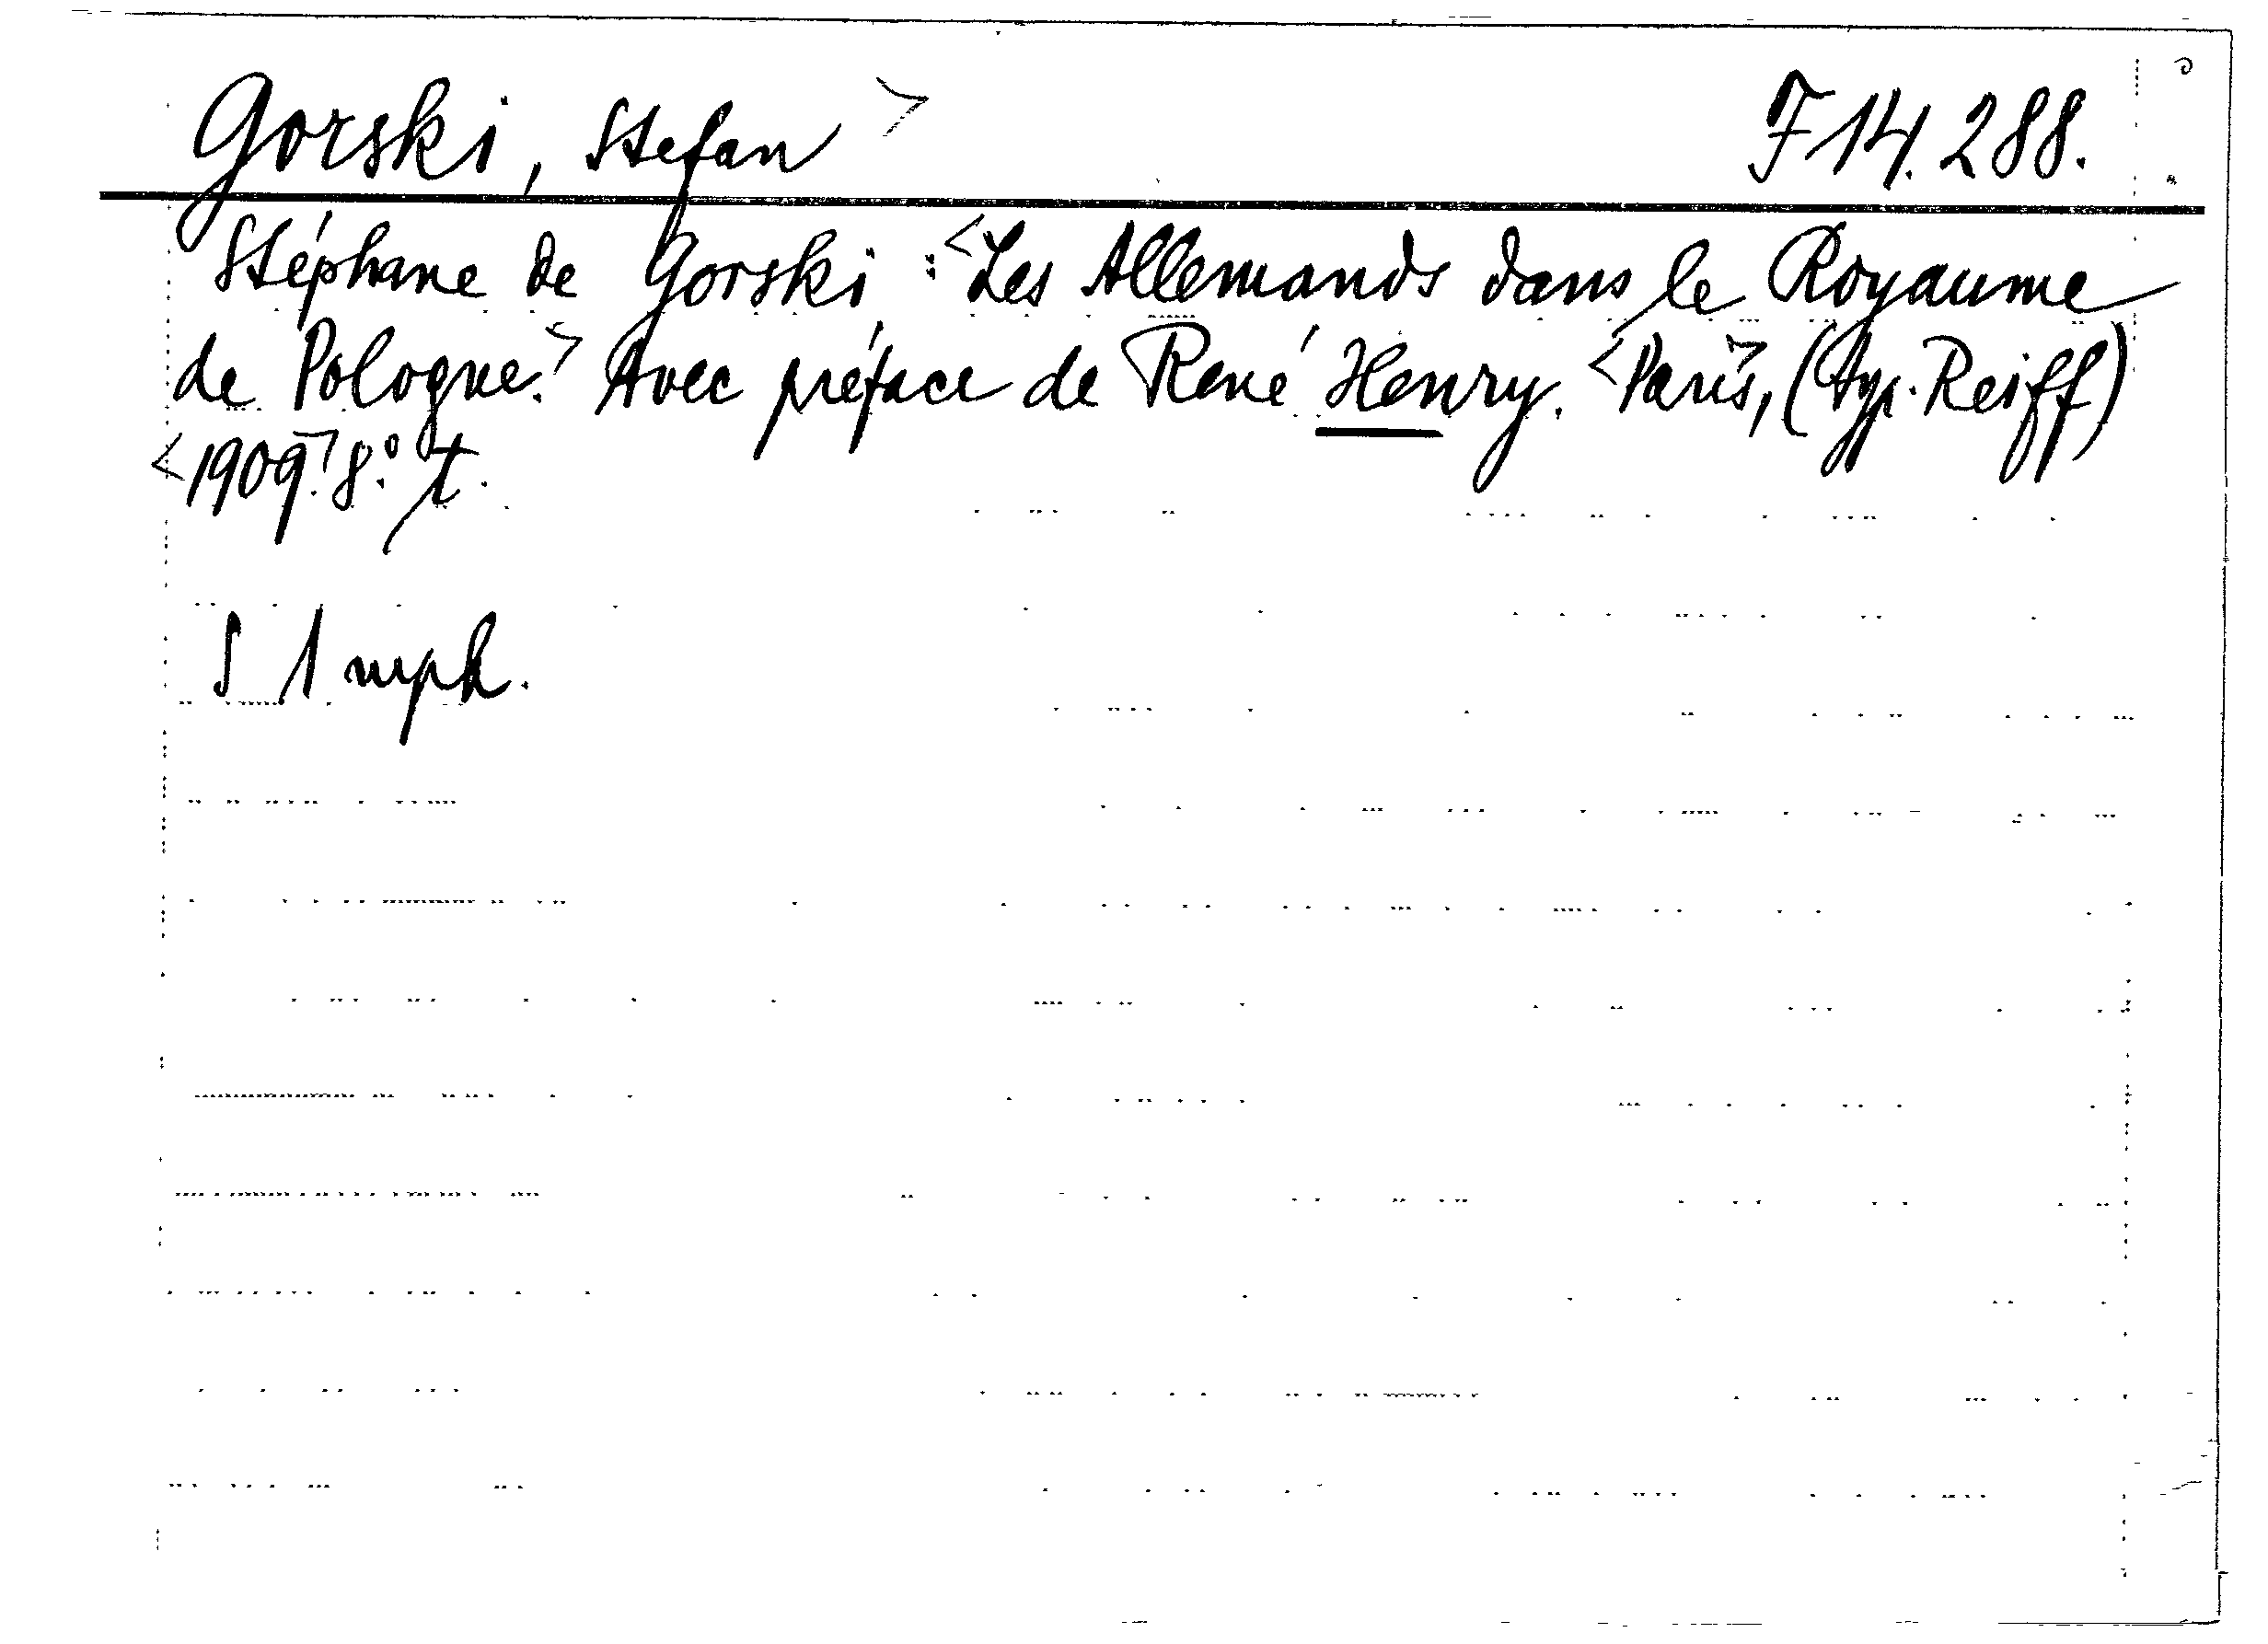 Gorski, Stefan> F 14.288.
Stéphane de Gorski: <Les Allemands dans le Royaume
de Pologne.> Avec préface de René Henry. <Paris,> (Typ. Reiff)
<1909.> 8.° t.
S 1 mph.